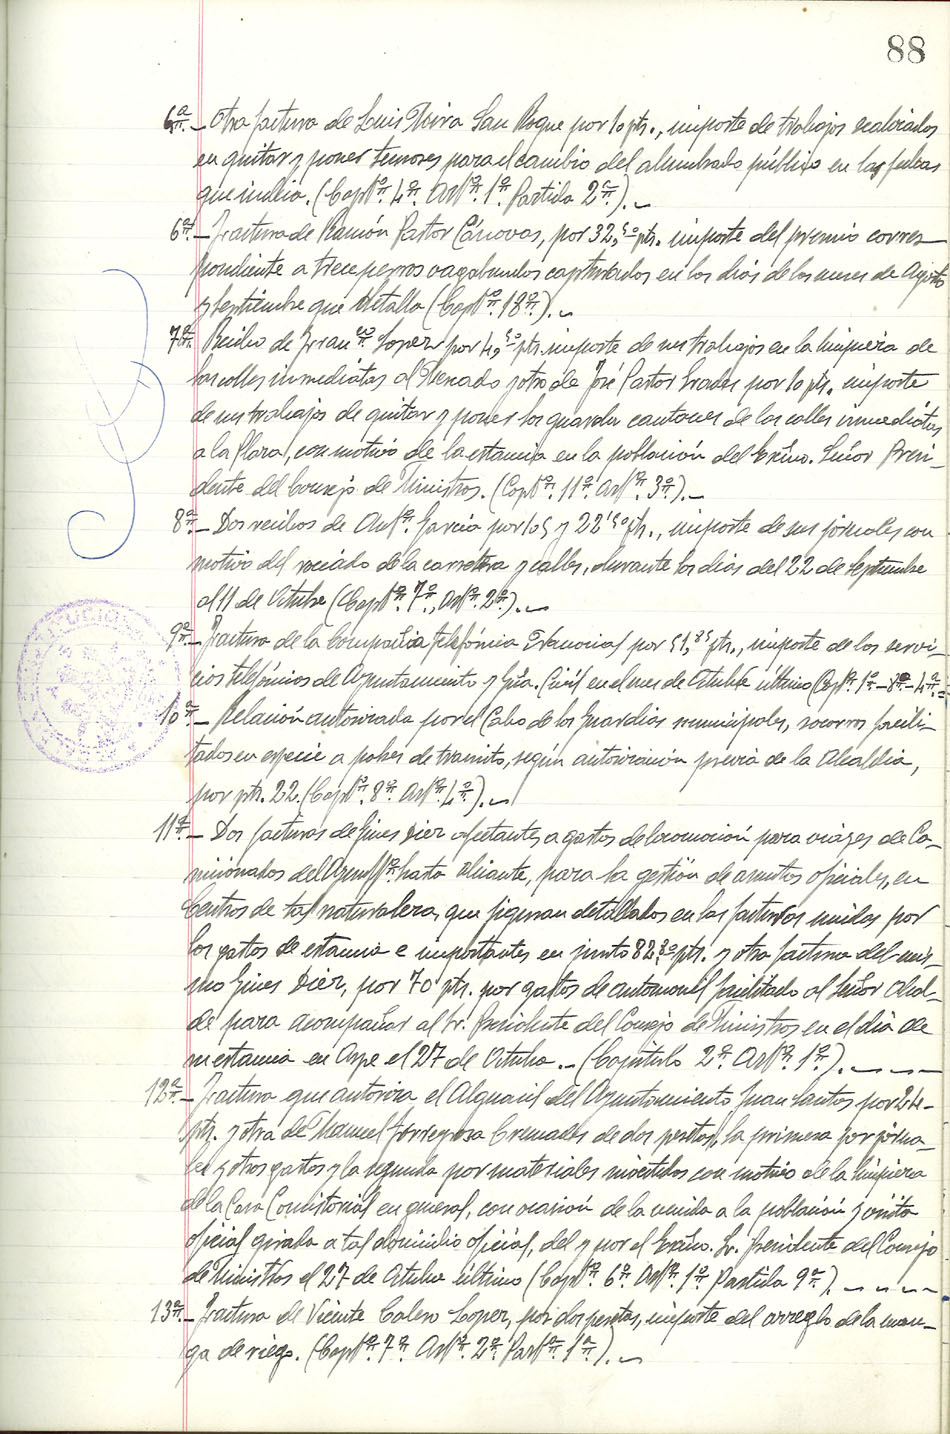 88
6ª.- Otra factura de Luis Mira San Roque por 10 pts., importe de trabajos realizados
en quitar y poner tensores para el cambio del alumbrado público en las fechas
que indica. (Capº. 4º. Artº. 1º. Partida 2ª.).-
6ª.- Factura de Ramón Pastor Cánovas, por 32,50 pts. importe del premio corres-
pondiente a trece perros vagabundos capturados en los dias de los meses de Agosto
y Septiembre que detalla (Captº. 18º.).-
7ª. Recibo de Franco. Lopez por 4,50 pts. importe de sus trabajos en la limpieza de
las calles inmediatas al Mercado y otro de José Pastor Prades por 10 pts. importe
de sus trabajos de quitar y poner los guarda cantones de las calles inmediatas
a la Plaza, con motivo de la estancia en la población del Excmo. Señor Presi-
dente del Consejo de Ministros. (Captº. 11º. Artº. 3º.).-
8ª.- Dos recibos de Antº. García por 105 y 22'50 pts., importe de sus jornales con
motivo del rociado de la carretera y calles, durante los dias del 22 de Septiembre
al 11 de Octubre (Captº. 7º., Artº. 2º.).-
9ª.- Factura de la Compañia Telefónica Nacional por 51,85 pts., importe de los servi-
cios telefónicos de Ayuntamiento y Gia. Civil en el mes de Octubre último (Capº. 1º.-8º.-4ª.=
10ª.- Relación autorizada por el Cabo de los Guardias municipales, socorros facili-
tados en especie a pobres de transito, según autorización previa de la Alcaldia,
por pts. 22. (Captº. 8º. Artº. 4º.).-
11ª.- Dos facturas de Gines Diez afectantes a gastos de locomoción para viajes de Co-
misionados del Ayuntº. hasta Alicante, para la gestión de asuntos oficiales, en
Centros de tal naturaleza, que figuran detallados en las facturas unidas por
los gastos de estancia e importantes en junto 82,30 pts. y otra factura del mis-
mo Gines Diez, por 70 pts. por gastos de automovil facilitado al Señor Alcal-
de para acompañar al Sr. Presidente del Consejo de Ministros en el dia de
su estancia en Aspe el 27 de Octubre.- (Capitulo 2º. Artº. 1º.).----
12ª.- Factura que autoriza el Alguacil del Ayuntamiento Juan Santos por 24-
pts. y otra de Manuel Torregrosa Cremades de dos pesetas, la primera por jorna-
les y otros gastos y la segunda por materiales invertidos con motivo de la limpieza
de la Casa Consistorial en general, con ocasión de la venida a la población y visita
oficial girada a tal domicilio oficial, del y por el Excmo. Sr. Presidente del Consejo
de Ministros el 27 de Octubre último (Captº. 6º. Artº. 1º. Partida 9ª.).----
13ª.- Factura de Vicente Calero Lopez, por dos pesetas, importe del arreglo de la man-
ga de riego. (Captº. 7º. Artº. 2º. Partª. 1ª.).-